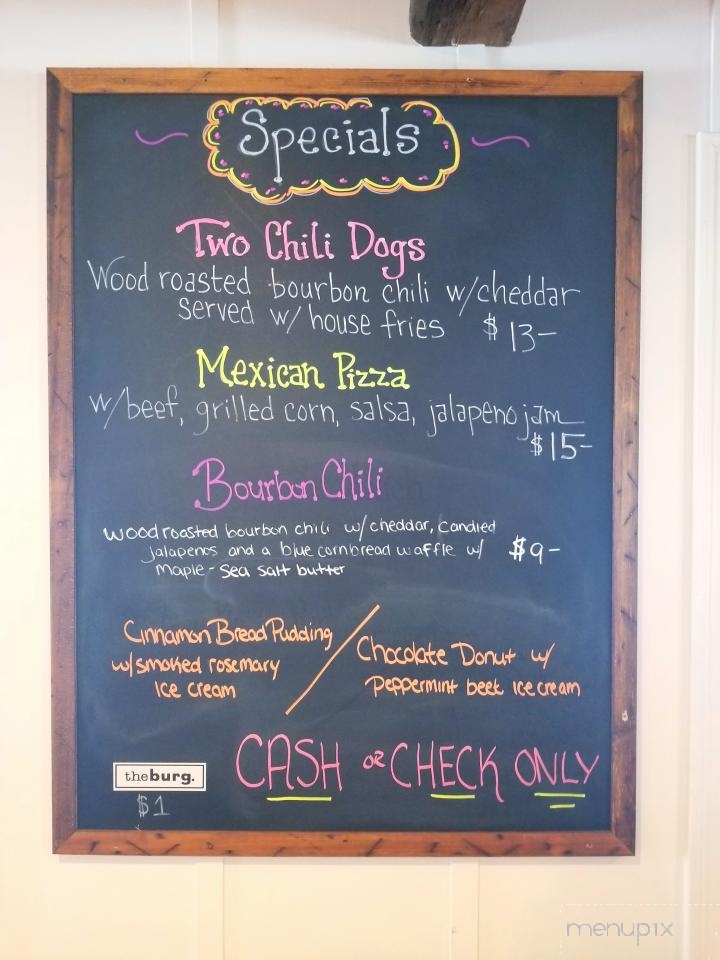 Specials
Two Chili Dogs
Wood roasted bourbon chili w/cheddar
served w/ house fries $13-
Mexican Pizza
w/beef, grilled corn, salsa, jalapeno jam
$15-
Bourbon Chili
wood roasted bourbon chili w/cheddar, candied
jalapenos and a blue cornbread waffle w/ $9-
maple-sea salt butter
Cinnamon Bread Pudding
w/smoked rosemary
Ice cream
Chocolate Donut w/
peppermint beet ice cream
CASH OR CHECK ONLY
theburg.
$1
menupix